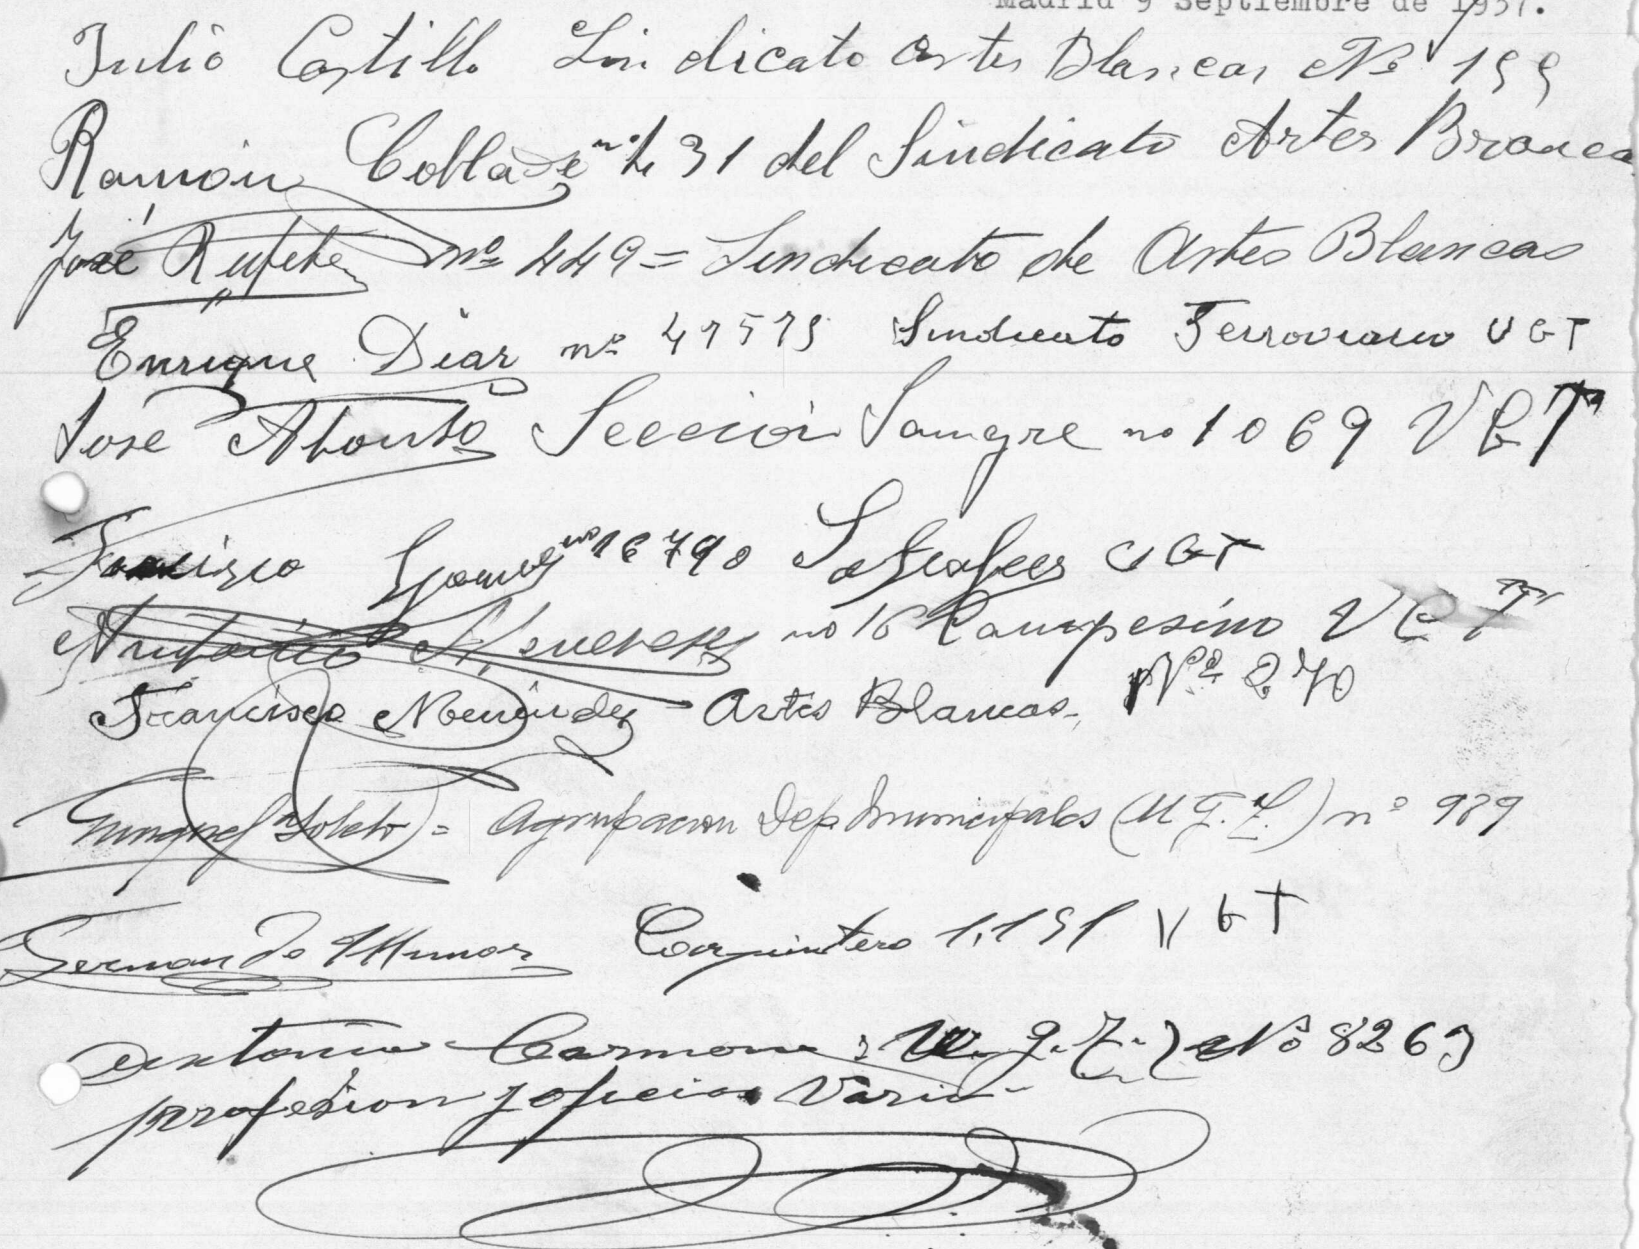 Madrid 9 Septiembre de 1937.
Julio Castillo Sindicato Artes Blancas Nº 199
Ramón Collado nº 31 del Sindicato Artes Brancas
José Rufete nº 449 = Sindicato de Artes Blancas
Enrique Diaz nº 41579 Sindicato Ferroviario UGT
Jose Alonso Sección Sangre nº 1069 UGT
Francisco Gomez nº 16790 UGT
Antonio nº 16 Campesino UGT
Francisco Menéndez Artes Blancas. Nº 270
Toledo = Agrupacion Dep Municipales (U G.T.) nº 989
Fernando Muños Carpintero 1,191 UGT
Antonio Carmona U. G.T.) Nº 8263
profesion y oficios Varios